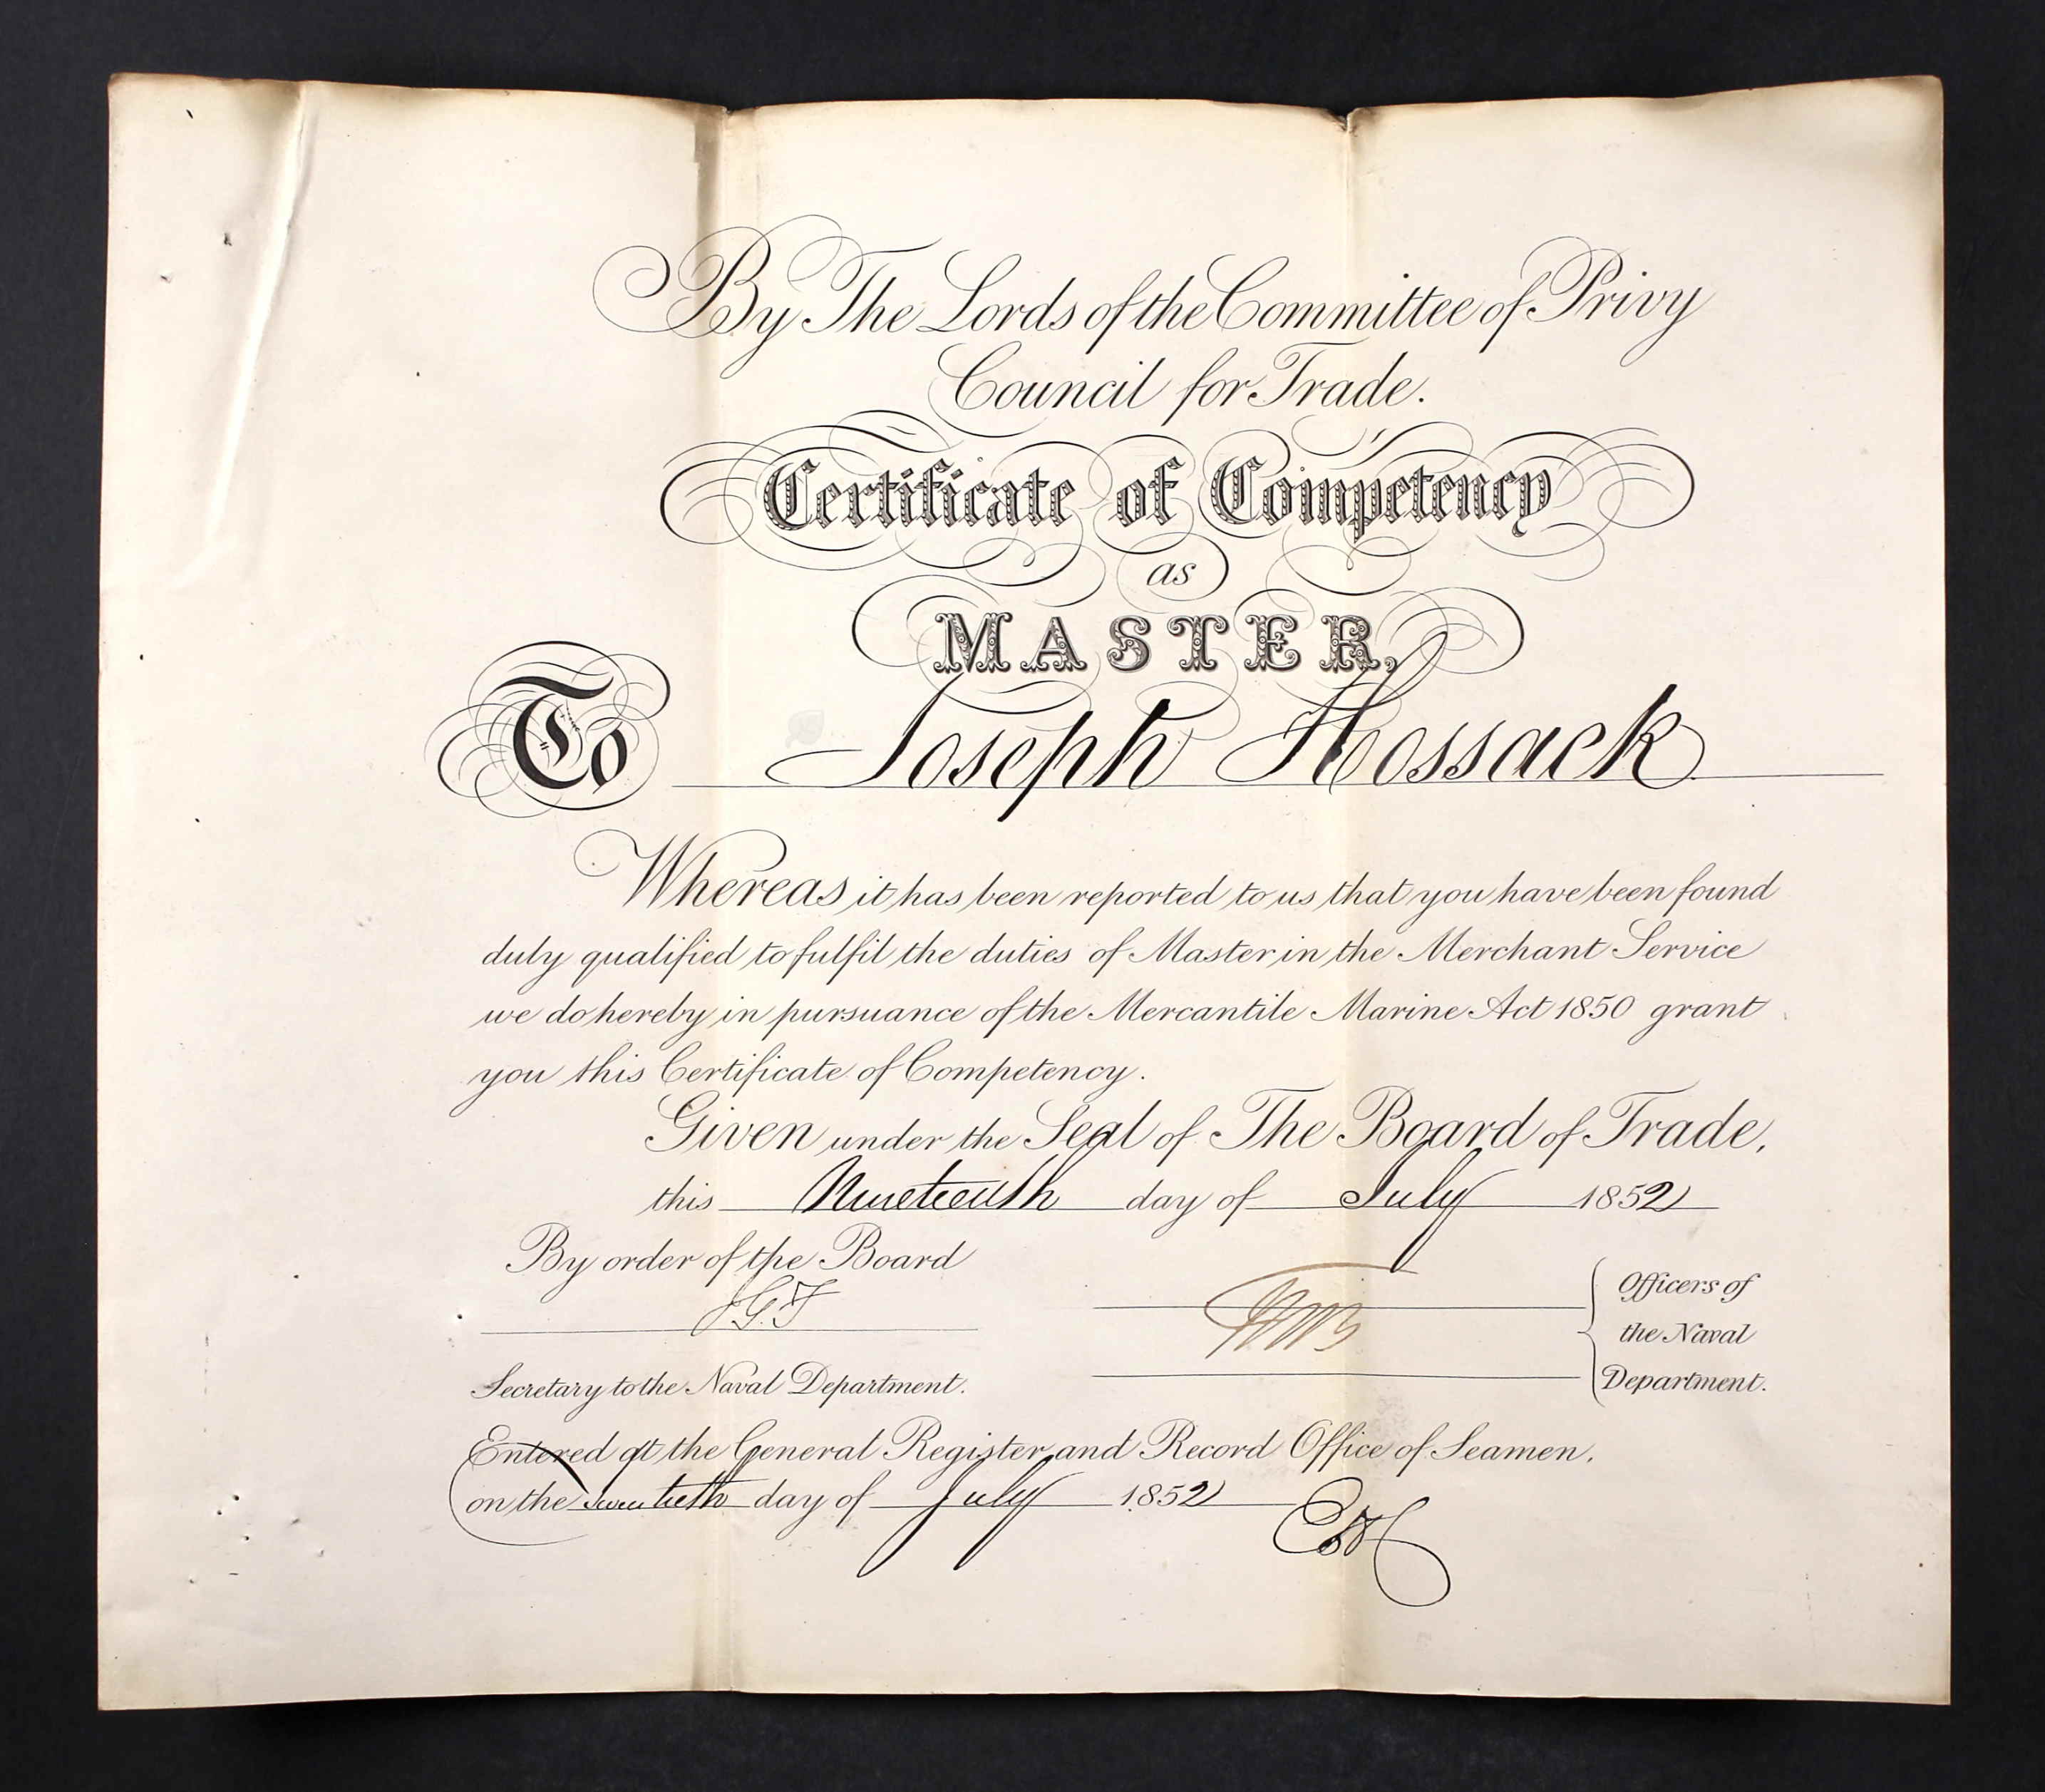 By The Lords of the Committee of Privy
Council for Trade.
Certificate of Competency
as
MASTER,
To Joseph Hossack
Whereas it has been reported to us that you have been found
duly qualified to fulfil the duties of Master in the Merchant Service
we do hereby in pursuance of the Mercantile Marine Act 1850 grant
you this Certificate of Competency.
Given under the Seal of The Board of Trade,
this Nineteenth day of July 1852
By order of the Board
Officers of
the Naval
Department.
Secretary to the Naval Department.
Entered at the General Register and Record Office of Seamen,
on the twentieth day of July 1852